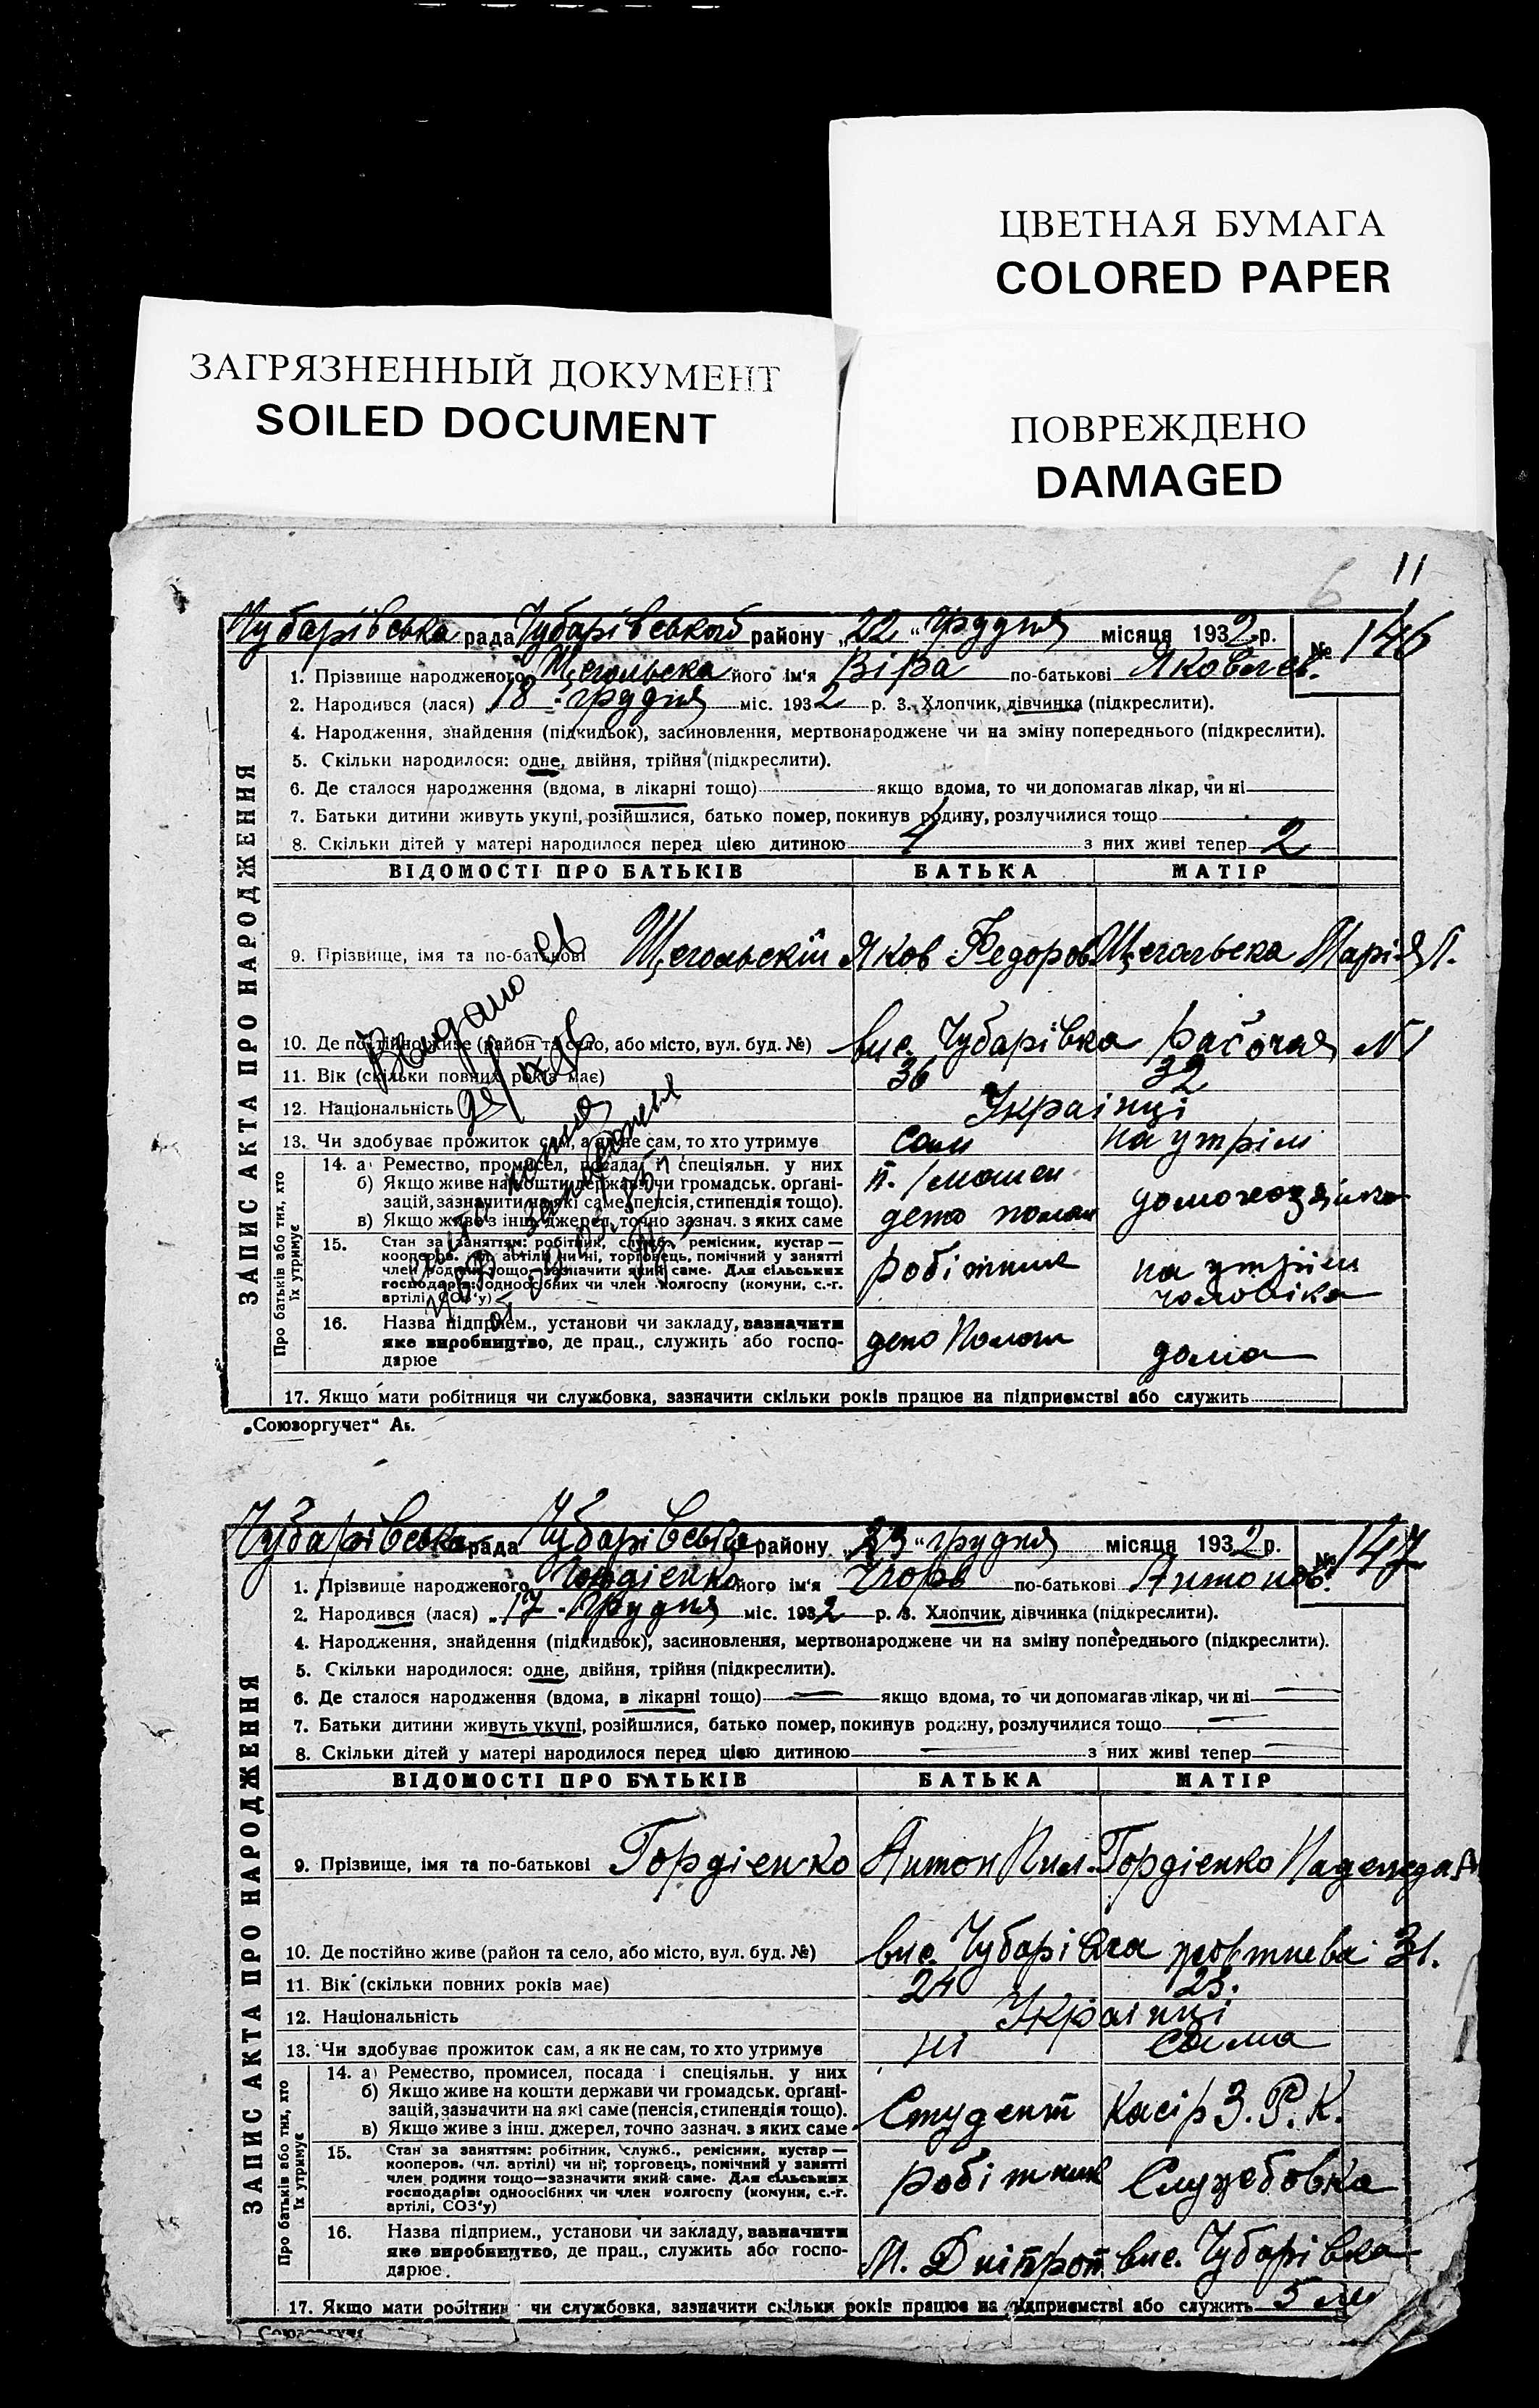 ЦВЕТНАЯ БУМАГА
COLORED PAPER
ЗАГРЯЗНЕННЫЙ ДОКУМЕНТ
SOILED DOCUMENT
ПОВРЕЖДЕНО
DAMAGED
6 11
Чубарівська рада Чубарівськой району „22“ грудня місяця 1932 р. № 146
ЗАПИС АКТА ПРО НАРОДЖЕННЯ
1. Прізвище народженого Щегольська його ім'я Віра по-батькові Яковлев.
2. Народився (лася) 18 грудня міс. 1932 р. 3. Хлопчик, дівчинка (підкреслити).
4. Народження, знайдення (підкидьок), засиновлення, мертвонароджене чи на зміну попереднього (підкреслити).
5. Скільки народилося: одне, двійня, трійня (підкреслити).
6. Де сталося народження (вдома, в лікарні тощо) якщо вдома, то чи допомагав лікар, чи ні
7. Батьки дитини живуть укупі, розійшлися, батько помер, покинув родину, розлучилися тощо
8. Скільки дітей у матері народилося перед цією дитиною 4 з них живі тепер 2
ВІДОМОСТІ ПРО БАТЬКІВ БАТЬКА МАТІР
9. Прізвище, імя та по-батькові Щегольскій Яков Федоров. Щегольска Марія П.
10. Де постійно живе (район та село, або місто, вул. буд. №) вис. Чубарівка рабочая №1
11. Вік (скільки повних років має) 36 32
12. Національність Українці
13. Чи здобуває прожиток сам, а як не сам, то хто утримує сам на утрім
Про батьків або тих, хто їх утримує
14. а) Ремество, промисел, посада і спеціяльн. у них
б) Якщо живе на кошти держави чи громадськ. органі-
зацій, зазначити на які саме (пенсія, стипендія тощо).
в) Якщо живе з інш. джерел, точно зазнач. з яких саме
депо полог домохозяйка
15. Стан за заняттям: робітник, служб., ремісник, кустар —
кооперов. (чл. артілі) чи ні, торговець, помічний у занятті
член родини тощо—зазначити який саме. Для сільських
господарів: одноосібних чи член колгоспу (комуни, с.-г.
артілі, СОЗ'у)
робітник на утрім чоловіка
16. Назва підприєм., установи чи закладу, зазначити
яке виробництво, де прац., служить або госпо-
дарює
депо Пологи дома
17. Якщо мати робітниця чи службовка, зазначити скільки років працює на підприємстві або служить
Видано
„Союзоргучет“
Чубарівська рада Чубарівська району „23“ грудня місяця 1932 р. № 147
ЗАПИС АКТА ПРО НАРОДЖЕННЯ
1. Прізвище народженого Гордіенко його ім'я Ігорь по-батькові Антонов.
2. Народився (лася) 17 грудня міс. 1932 р. 3. Хлопчик, дівчинка (підкреслити).
4. Народження, знайдення (підкидьок), засиновлення, мертвонароджене чи на зміну попереднього (підкреслити).
5. Скільки народилося: одне, двійня, трійня (підкреслити).
6. Де сталося народження (вдома, в лікарні тощо) якщо вдома, то чи допомагав лікар, чи ні
7. Батьки дитини живуть укупі, розійшлися, батько помер, покинув родину, розлучилися тощо
8. Скільки дітей у матері народилося перед цією дитиною з них живі тепер
ВІДОМОСТІ ПРО БАТЬКІВ БАТЬКА МАТІР
9. Прізвище, імя та по-батькові Гордіенко Антон Пил. Гордіенко Надежда
10. Де постійно живе (район та село, або місто, вул. буд. №) вис. Чубарівка жовтнева 31.
11. Вік (скільки повних років має) 24 23.
12. Національність Українці
13. Чи здобуває прожиток сам, а як не сам, то хто утримує ні сама
Про батьків або тих, хто їх утримує
14. а) Ремество, промисел, посада і спеціяльн. у них
б) Якщо живе на кошти держави чи громадськ. органі-
зацій, зазначити на які саме (пенсія, стипендія тощо).
в) Якщо живе з інш. джерел, точно зазнач. з яких саме
Студент Касір З.Р.К.
15. Стан за заняттям: робітник, служб., ремісник, кустар —
кооперов. (чл. артілі) чи ні, торговець, помічний у занятті
член родини тощо—зазначити який саме. Для сільських
господарів: одноосібних чи член колгоспу (комуни, с.-г.
артілі, СОЗ'у)
робітник Службовка
16. Назва підприєм., установи чи закладу, зазначити
яке виробництво, де прац., служить або госпо-
дарює.
М. Дніпроп. вис. Чубарівка
17. Якщо мати робітниц чи службовка, зазначити скільки років працює на підприємстві або служить 5 м
Союзоргучет